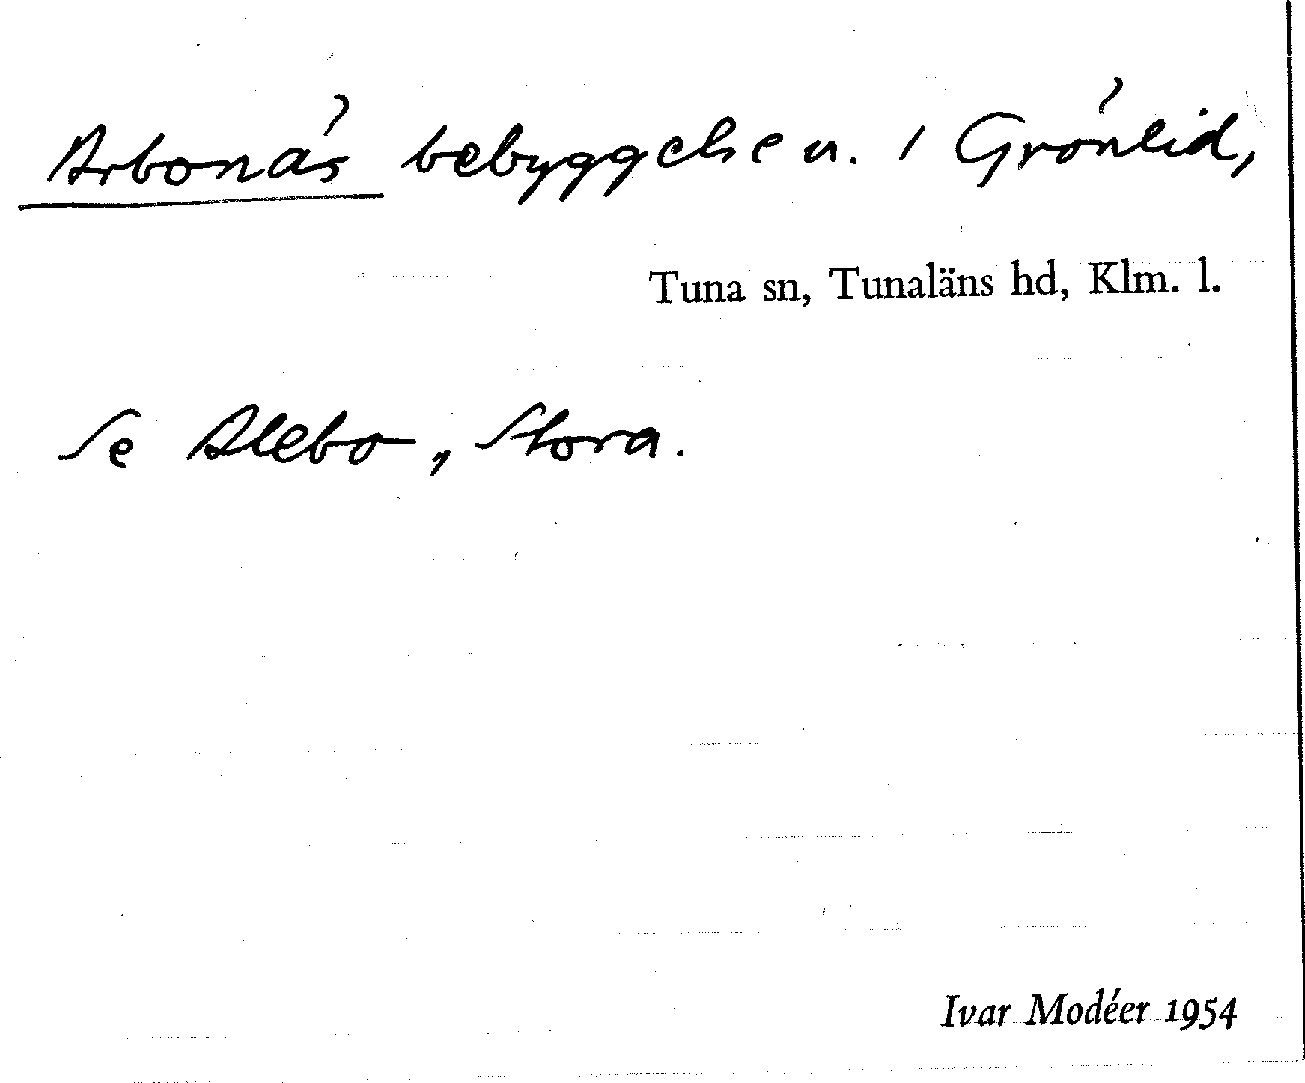 Arbonäs bebyggelsen. i Grönlid,
Tuna sn, Tunaläns hd, Klm. l.
Se Alebo, Stora.
Ivar Modéer 1954